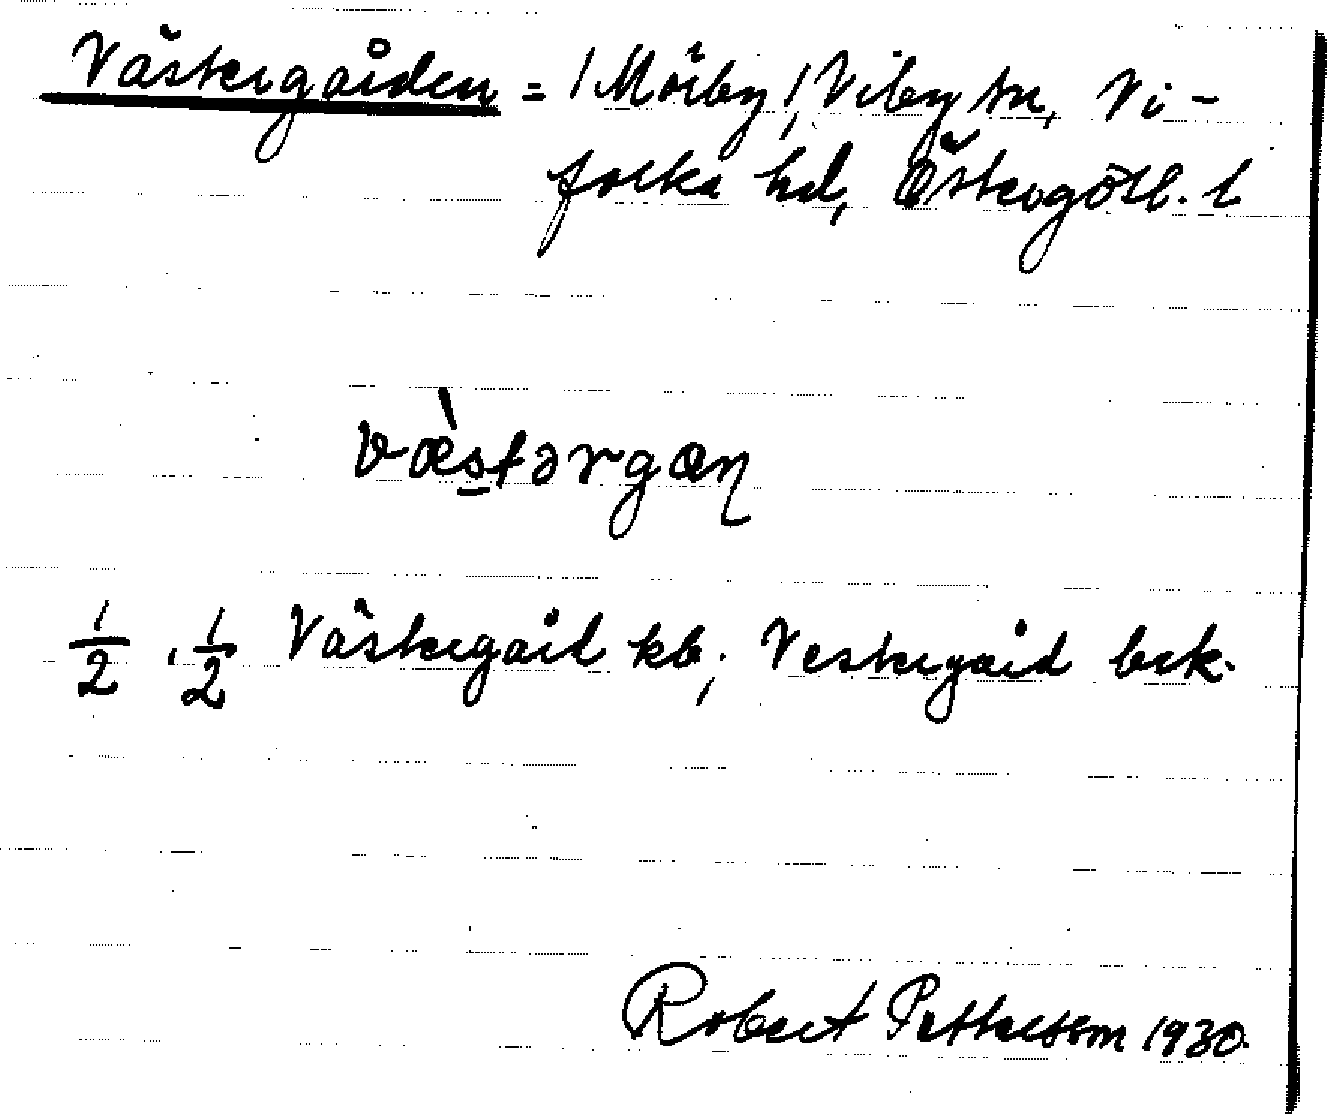 Västergården = /Mörby/, Viby sn, Vi-
folka hd, Östergötl. l
væ̀stərgan
1/2, 1/2 Västergård kb; Vestergård bek.
Robert Pettersson 1930.